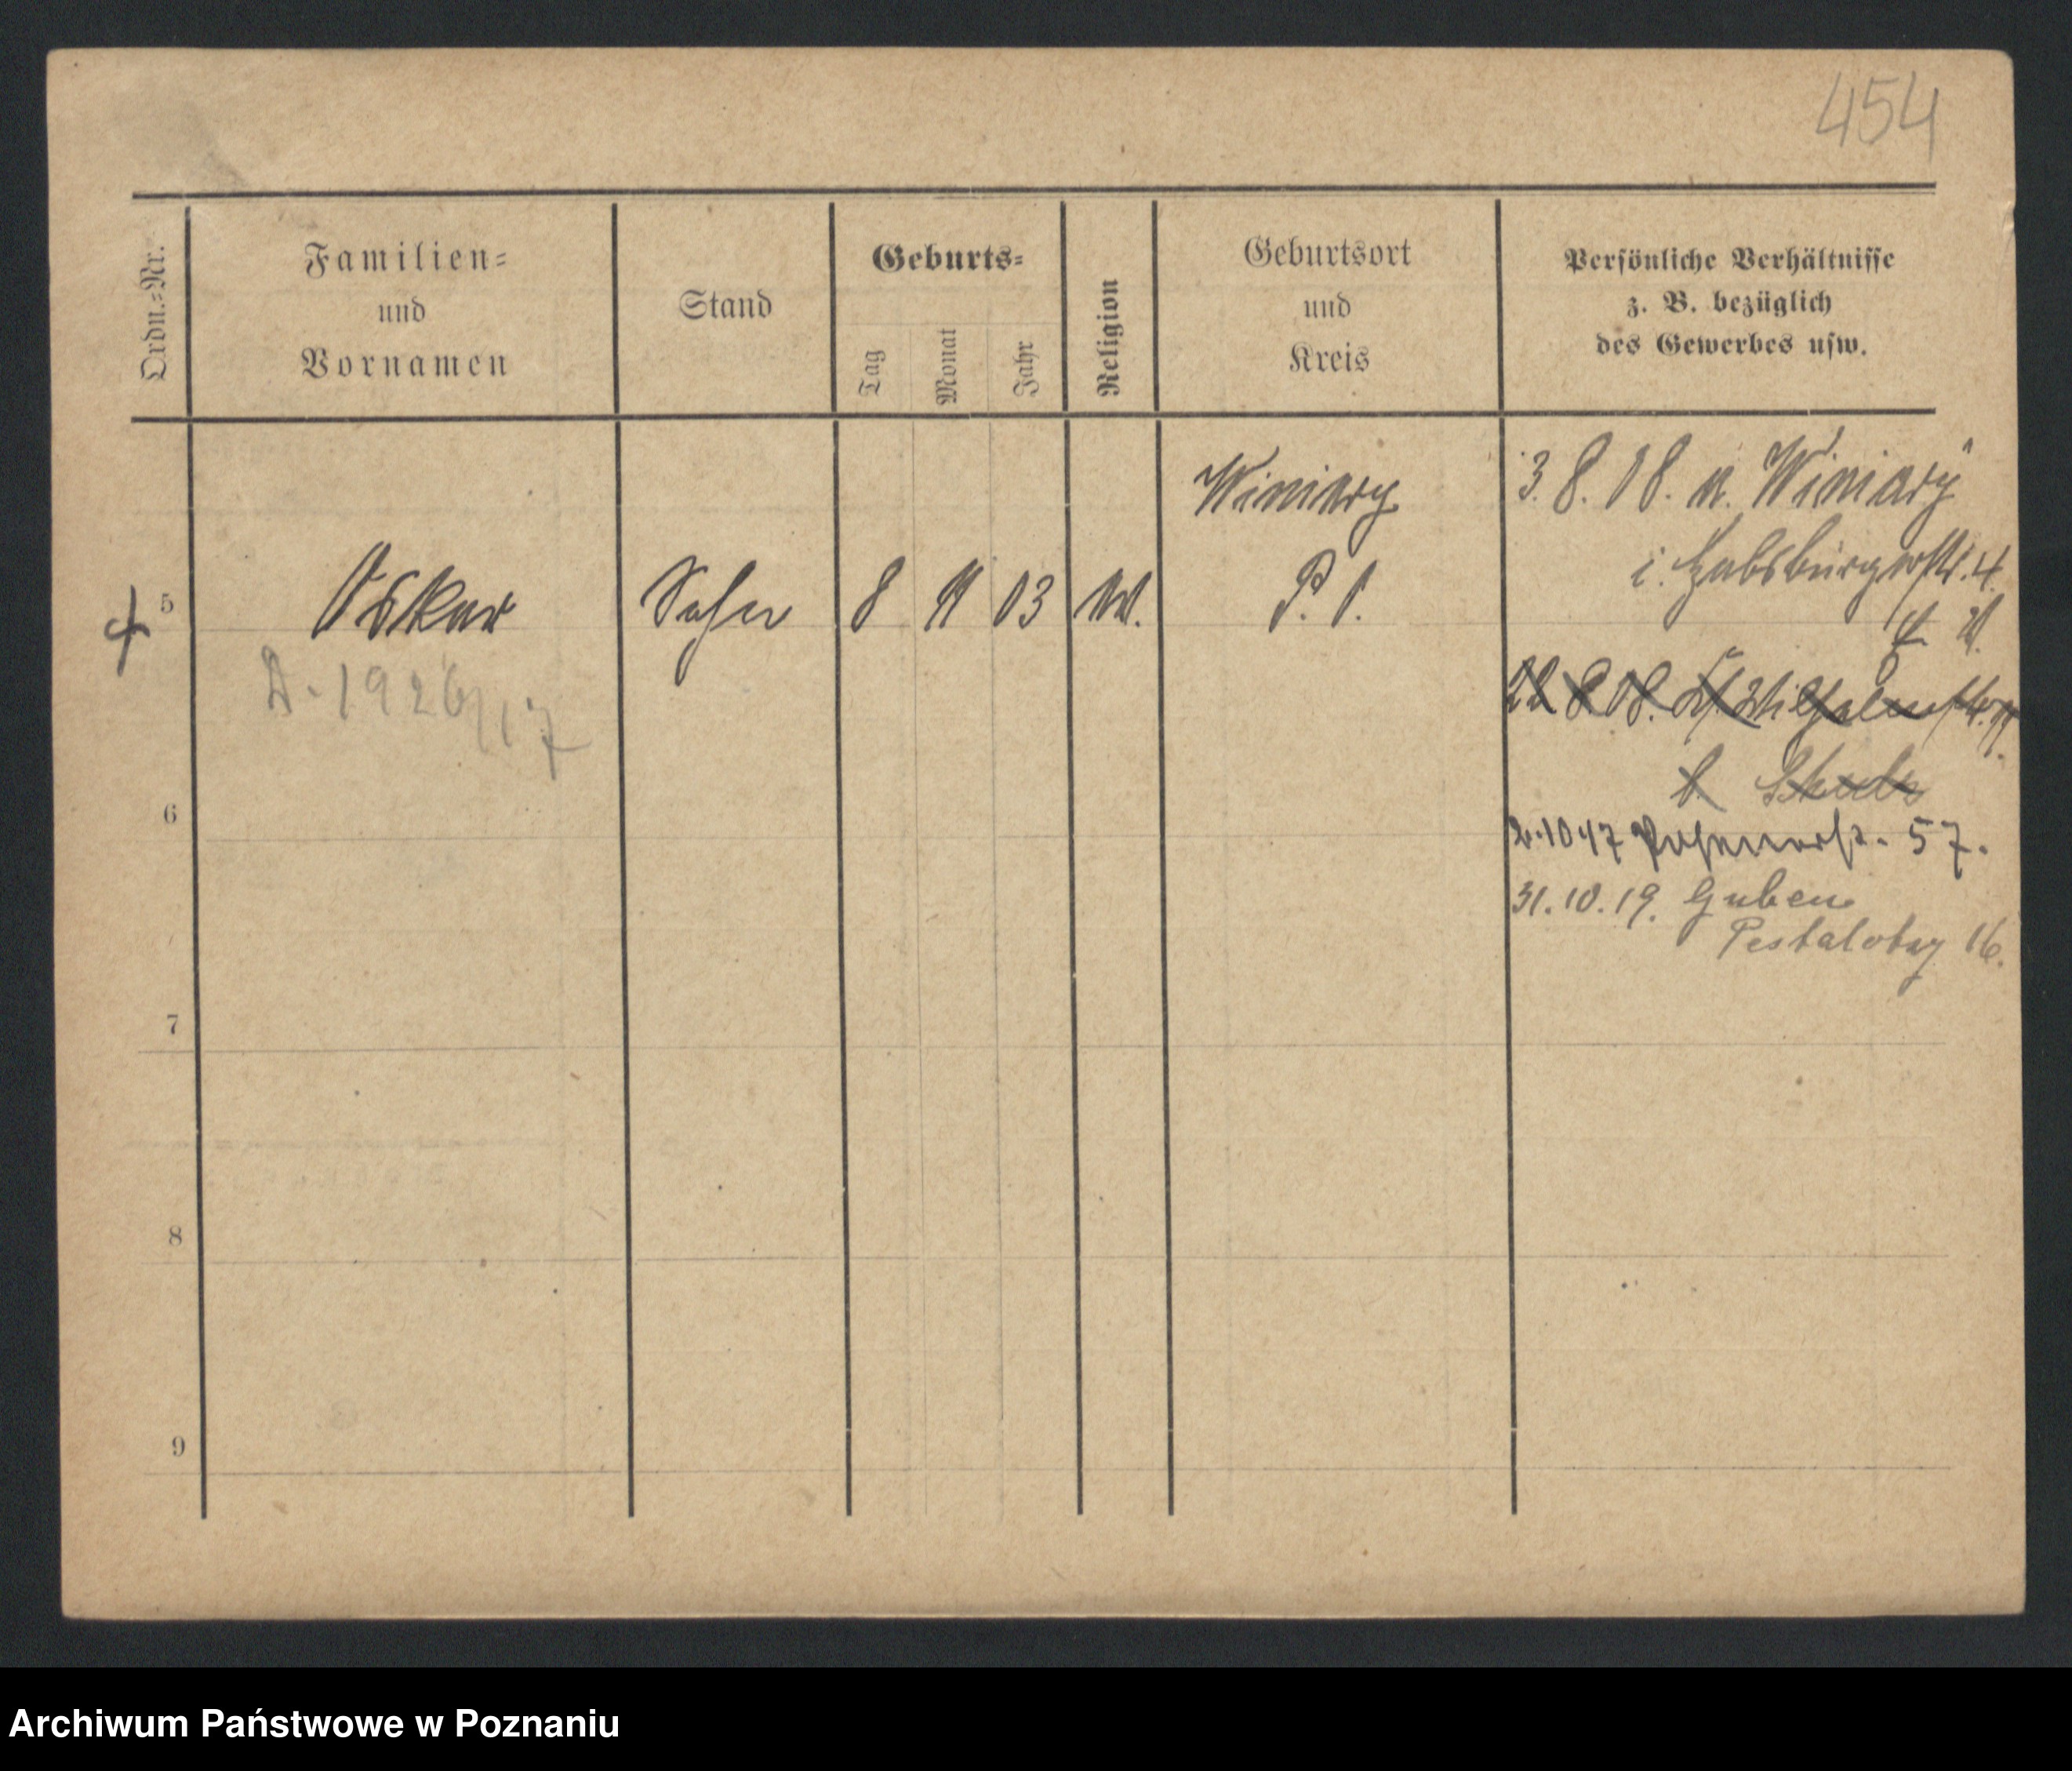 454
Ordn.=Nr.
Familien=
und
Vornamen
Stand
Geburts=
Tag
Monat
Jahr
Religion
Geburtsort
und
Kreis
Persönliche Verhältnisse
z. B. bezüglich
des Gewerbes usw.
Winiary
3. 8. 08. n. Winiary
i. Habsburgerstr. 4.
5 Oskar Sohn 8 11 03 P. O.
D. 1926/17
22 8. 08. Wilhelmstr.
6
2.10 17 Posenerstr. 57.
31. 10. 19. Guben
Pestalotzy 16.
7
8
9
Archiwum Państwowe w Poznaniu